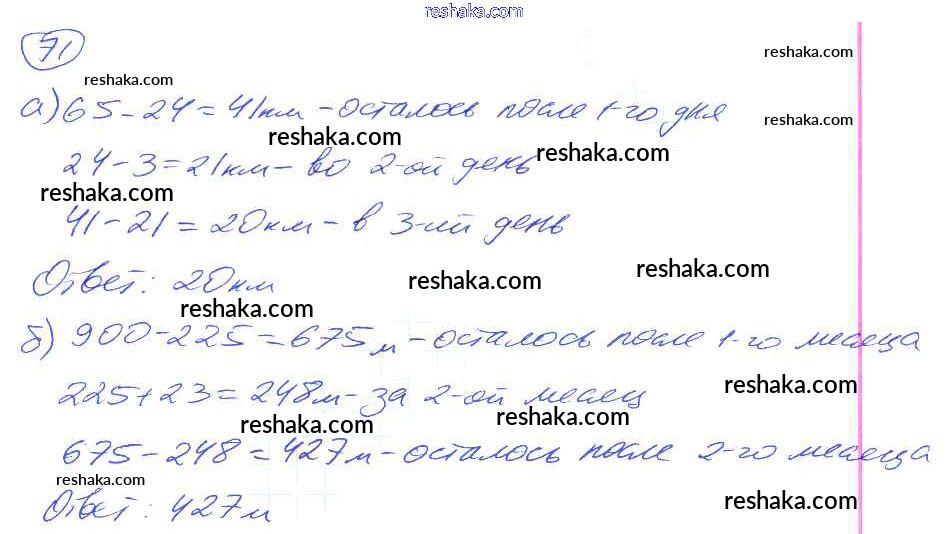 reshaka.com
71
reshaka.com
reshaka.com
а) 65 - 24 = 41 км - осталось после 1-го дня
reshaka.com
reshaka.com
reshaka.com
24 - 3 = 21 км - во 2-ой день
reshaka.com
41 - 21 = 20 км - в 3-ий день
reshaka.com
reshaka.com
Ответ: 20 км
reshaka.com
б) 900 - 225 = 675 м - осталось после 1-го месяца
reshaka.com
225 + 23 = 248 м - за 2-ой месяц
reshaka.com
reshaka.com
675 - 248 = 427 м - осталось после 2-го месяца
reshaka.com
reshaka.com
Ответ: 427 м